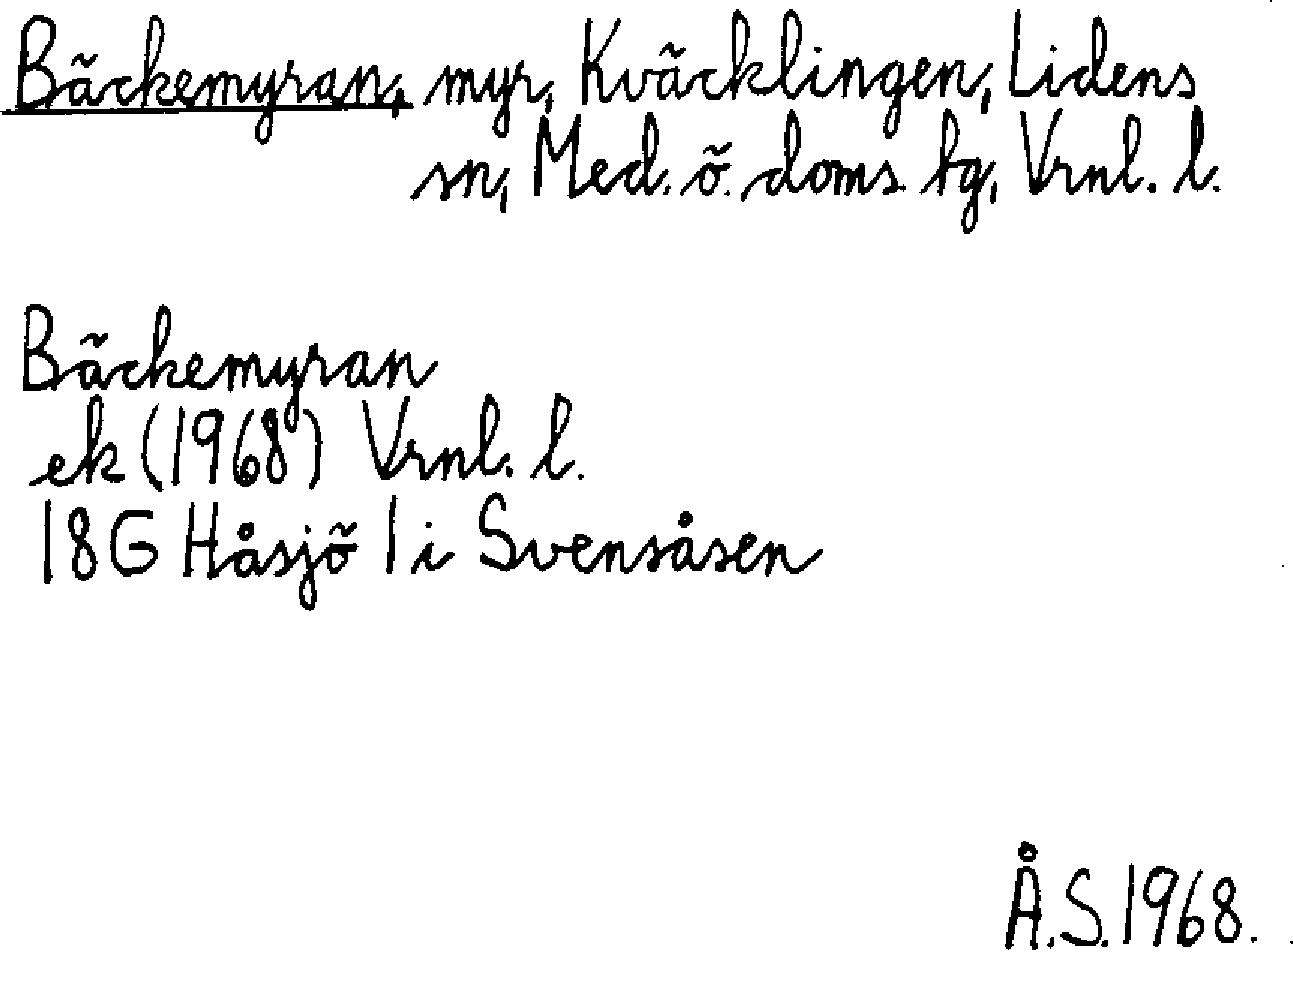 Bäckemyran, myr, Kväcklingen, Lidens
sn, Med. ö. doms. tg, Vrnl. l.
Bäckemyran
ek (1968) Vrnl. l.
18G Håsjö 1 i Svensåsen
Å.S. 1968.